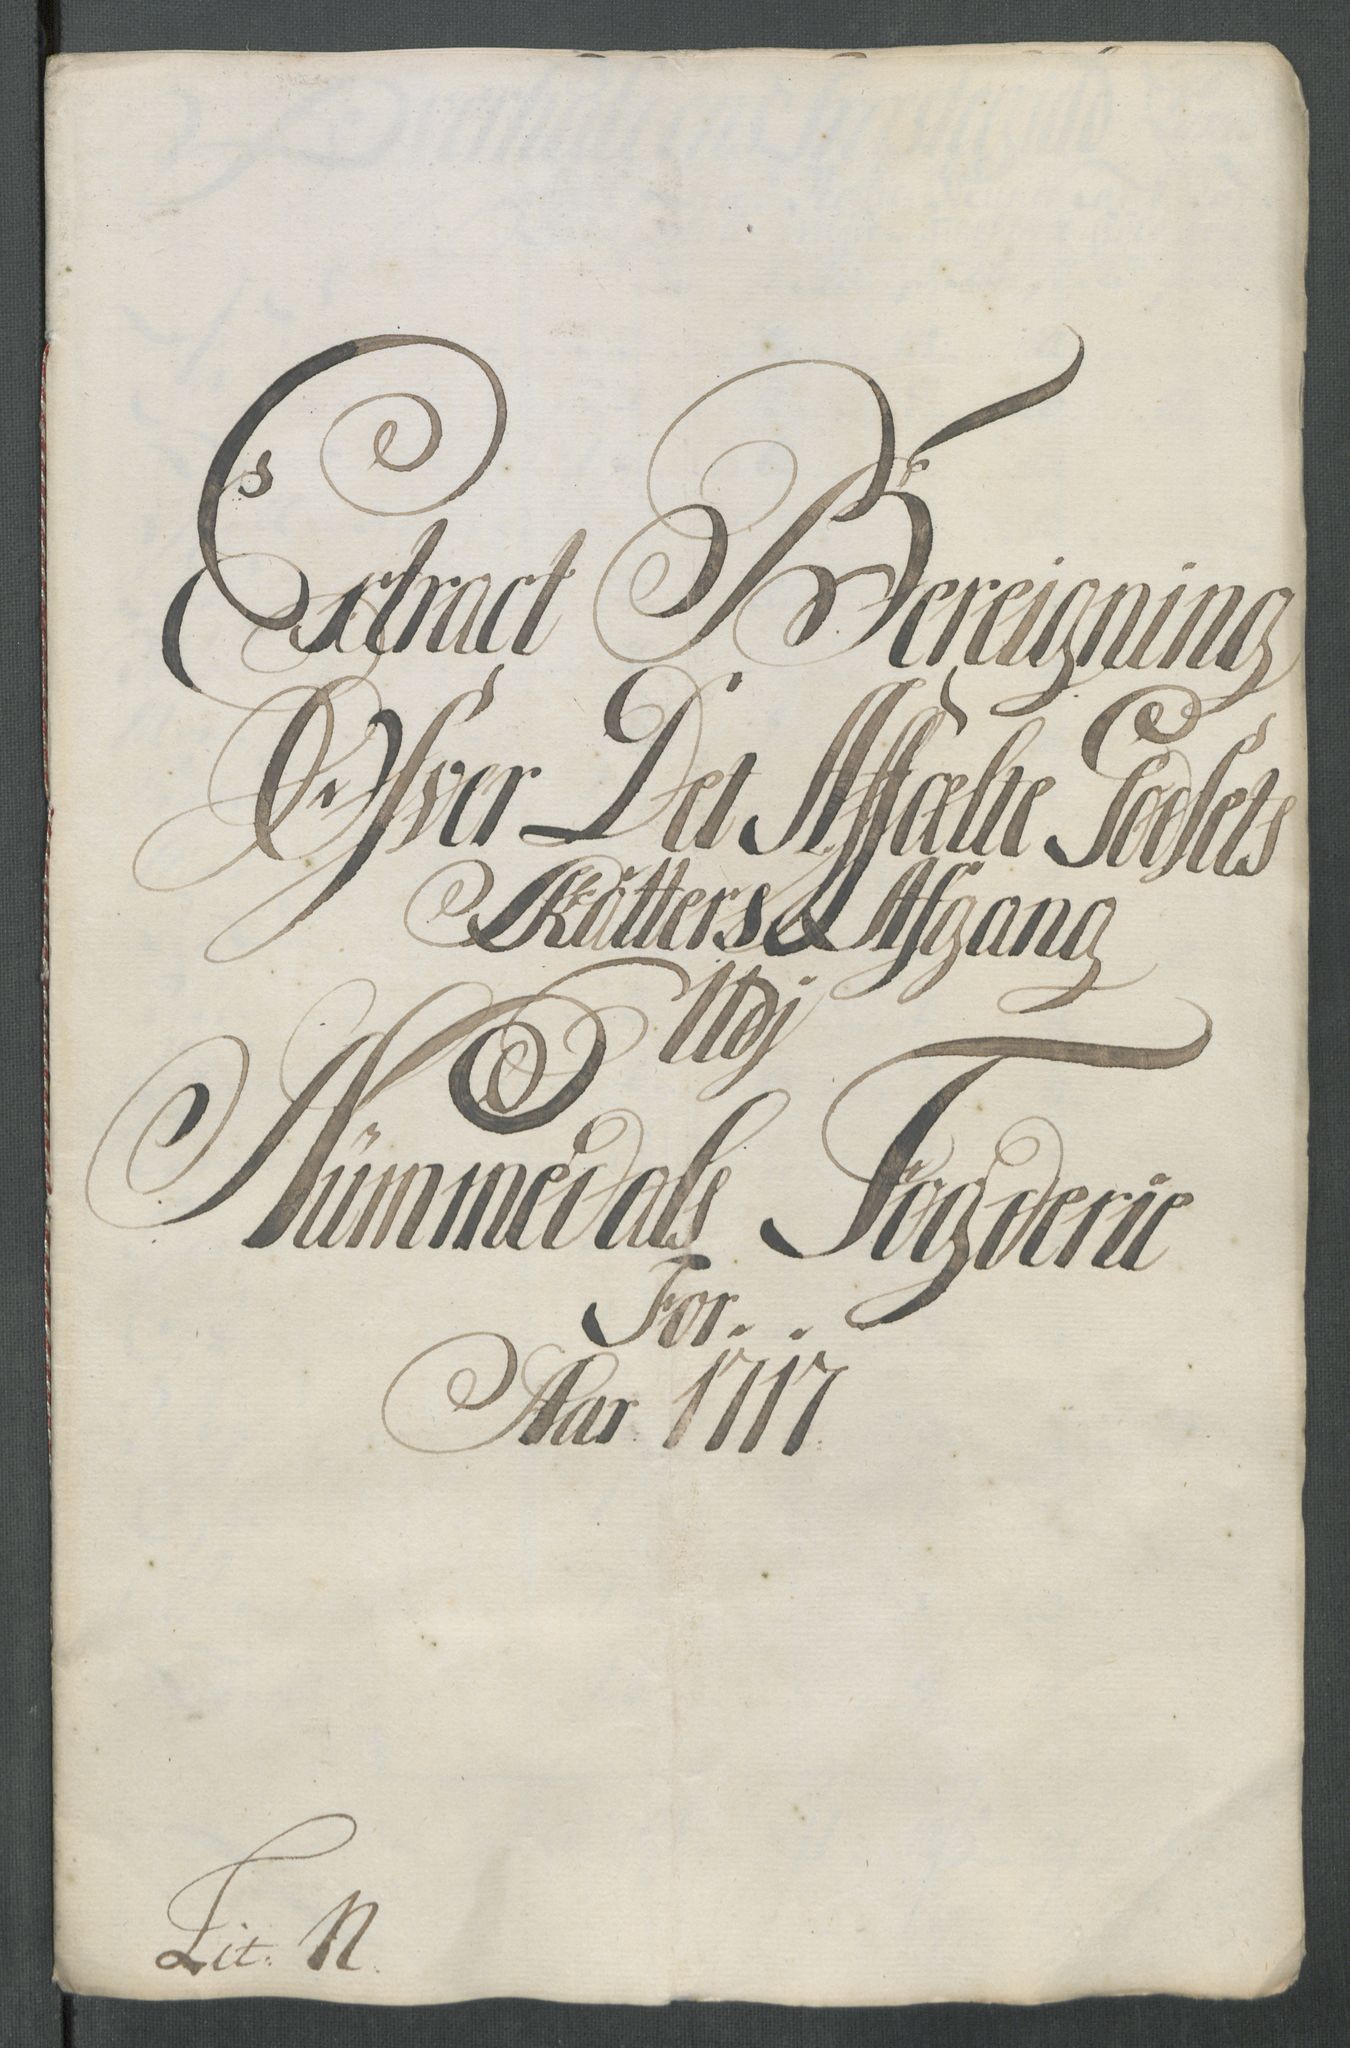 Extract Bereigning
Ofver Det Affælte Godsets
Skatters Afgang
Udj
Nümmedals Fogderie
For
Aar 1717
Lit: N.